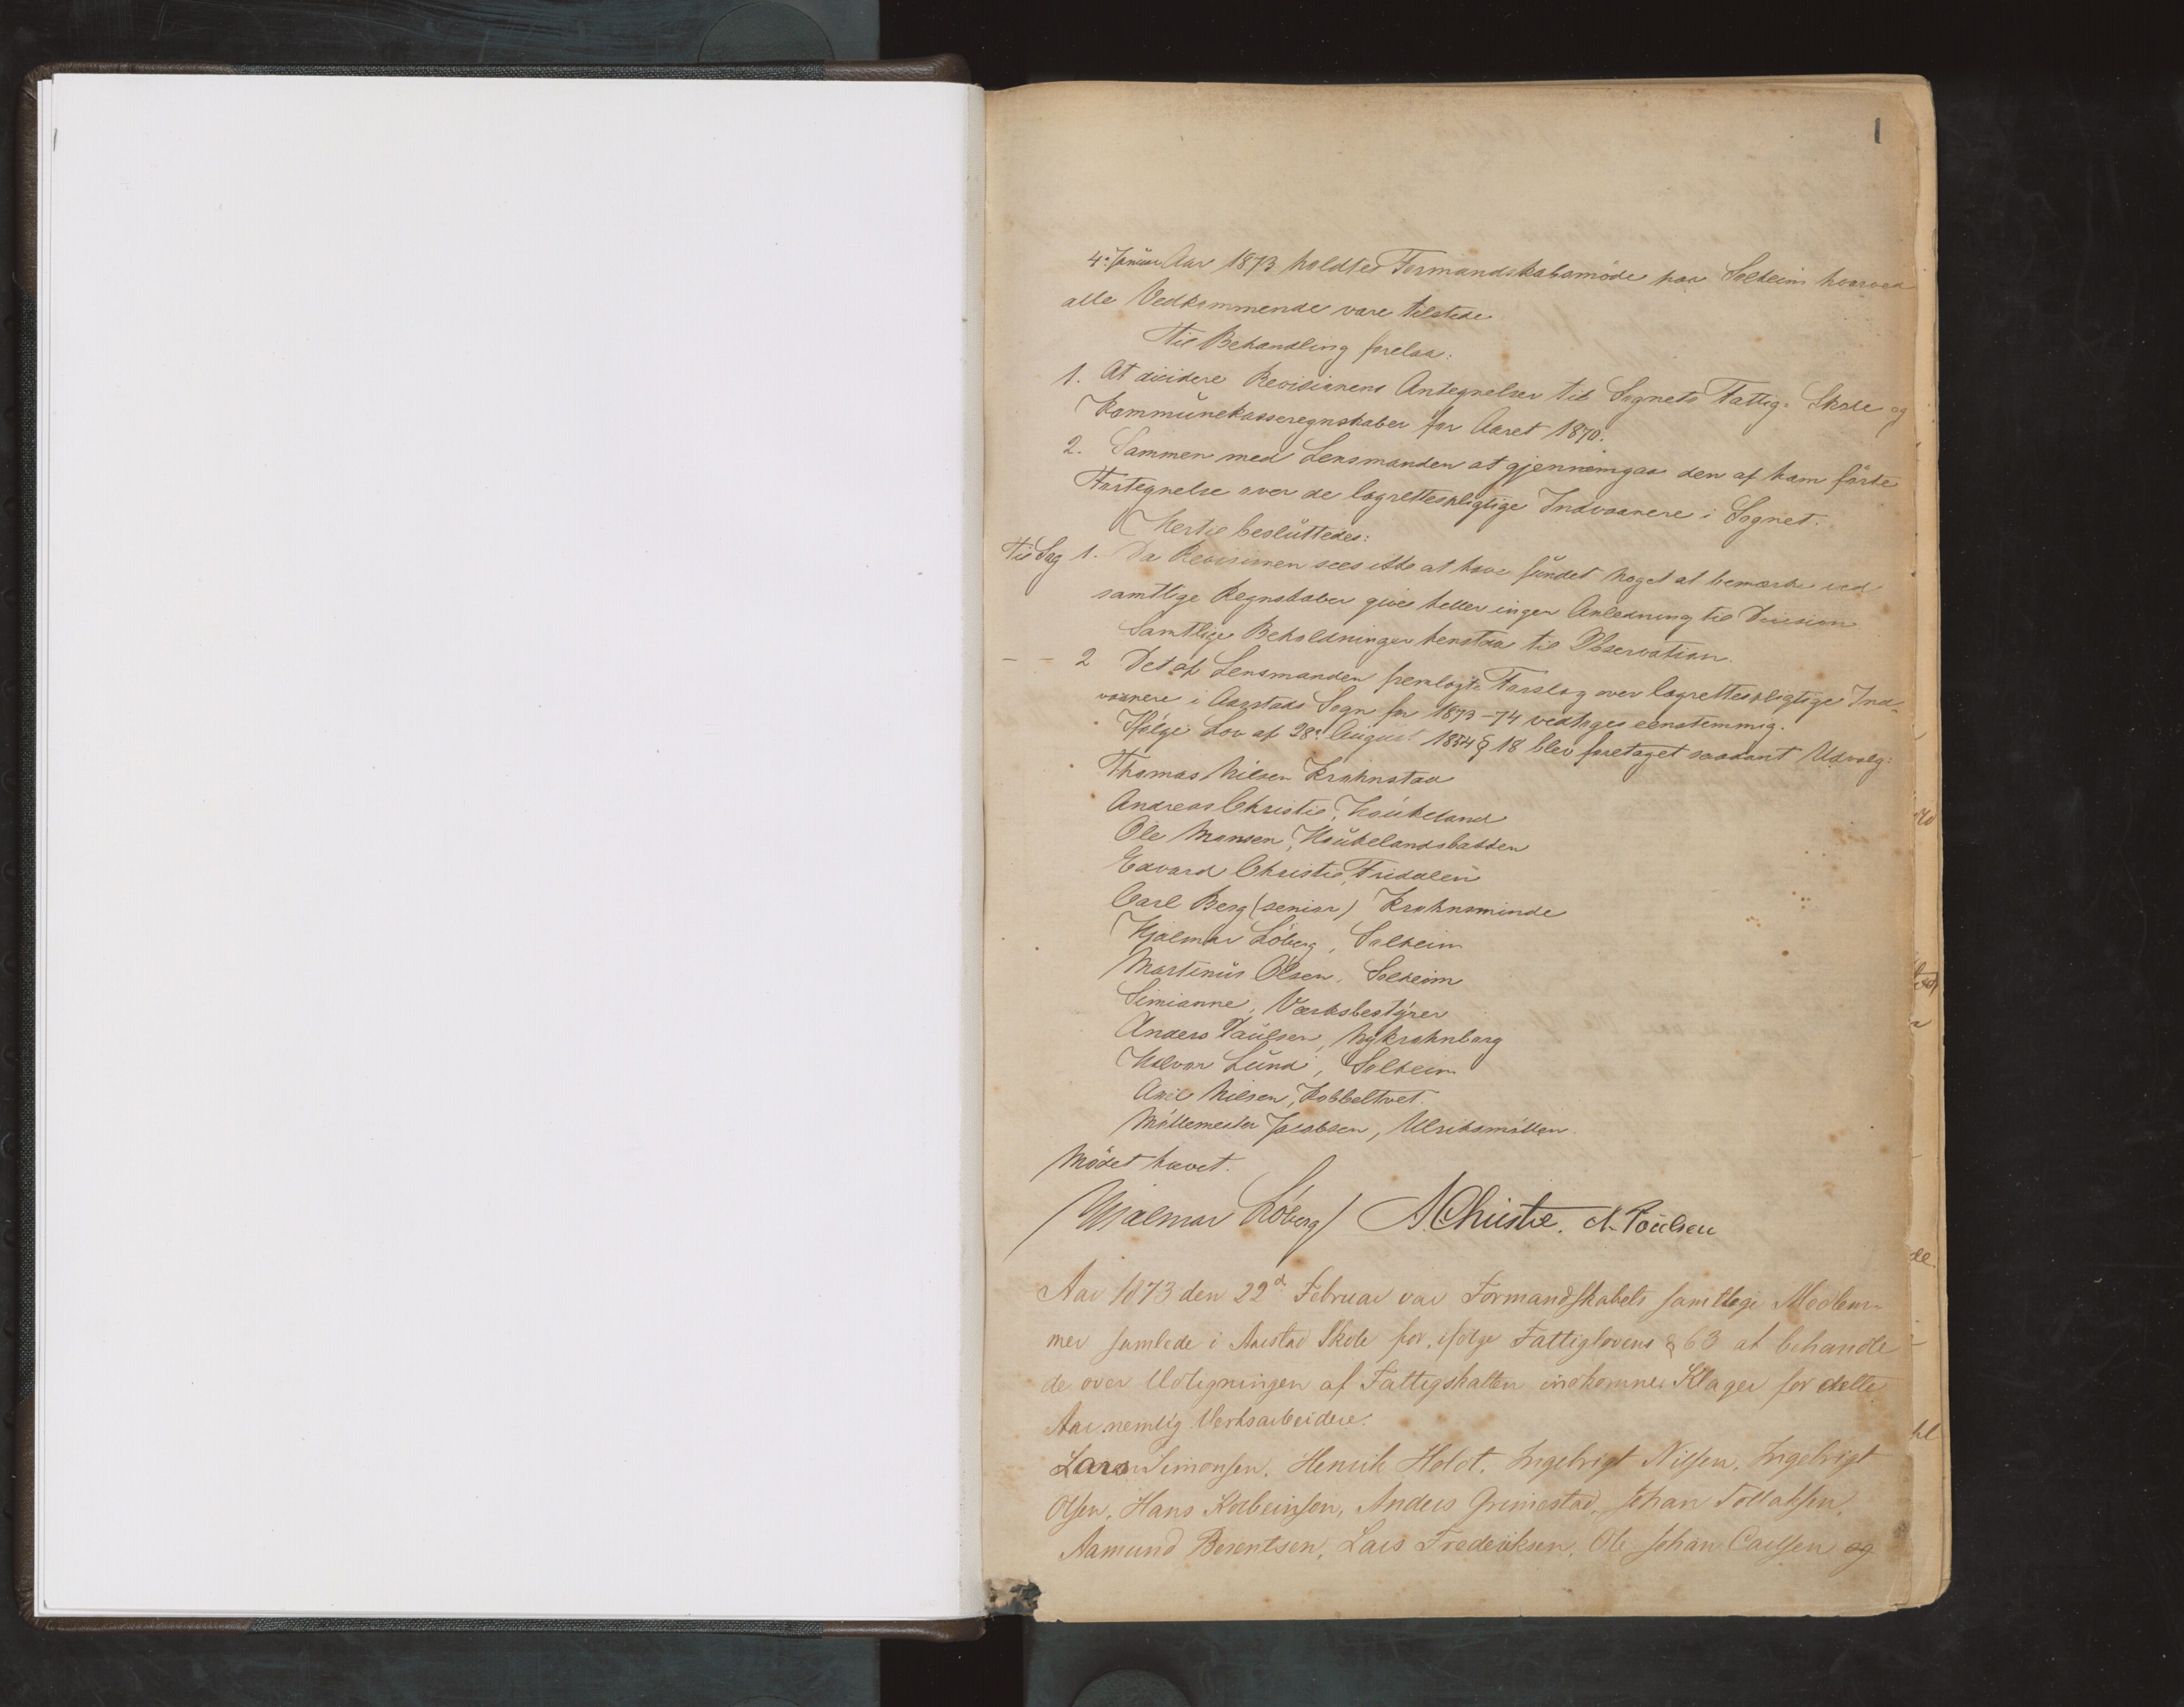 1
4de Januar Aar 1873 holdtes Formandskabsmöde paa Solheim hvorved
alle Vedkommende vare tilstede
Til Behandling forelaa:
1. At dicidere Revisionens Antegnelser til Sognets Fattig- Skole og
Kommunekasseregnskaber for Aaret 1870.
2. Sammen med Lensmanden at gjennemgaa den af ham förte
Fortegnelse over de lagrettespligtige Indvaanere i Sognet.
Hertil besluttedes:
Til Sag 1. Da Revisionen sees ikke at have fundet noget at bemærke ved
samtlige Regnskaber gives heller ingen Anledning til Dicision.
Samtlige Beholdninger henstaa til Observation.
— — 2 Det af Lensmanden fremlagte Forslag over lagrettespligtige Ind-
vaanere i Aarstads Sogn for 1873-74 vedtoges eenstemmig.
Ifölge Lov af 28de August 1854 § 18 blev foretaget saadant Udvalg:
Thomas Nilsen Krohnstad
Andreas Christie, Haukeland
Ole Monsen, Haukelandsbakken
Edvard Christie, Fridalen
Carl Berg (senior) Krohnsminde
Hjalmar Löberg, Solheim
Martinus Olsen, Solheim
Simianne, Værksbestyrer
Anders Paulsen, Nykrohnborg
Halvor Lund, Solheim
Axil Nilsen, Kobbeltvet.
Möllemester Jacobsen, Ulriksmöllen.
Mödet hævet.
Hjalmar Löberg / A Christie. A. Poulsen
Aar 1873 den 22d Februar var Formandskabets samtlige Medlem-
mer samlede i Aarstad Skole for, ifölge Fattiglovens § 63 at behandle
de over Udligningen af Fattigskatten indkomne Klager for dette
Aar nemlig Verksarbeidere:
Lars Simonsen, Henrik Holdt, Ingebrigt Nilsen, Ingebrigt
Olsen, Hans Kolbeinsen, Anders Grimestad, Johan Tollaksen,
Aamund Berentsen, Lars Frederiksen, Ole Johan Carlsen og